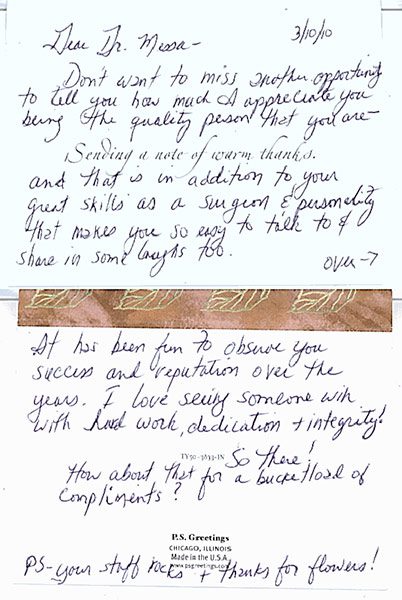 3/10/10
Dear Dr. Messa-
Don't want to miss another opportunity
to tell you how much I appreciate you
being the quality person that you are-
Sending a note of warm thanks.
and that is in addition to your
great skills as a surgeon & personality
that makes you so easy to talk to &
share in some laughs too.
over →
It has been fun to observe you
success and reputation over the
years. I love seeing someone win
with hard work, dedication + integrity!
TY50-3633-IN
So there!
How about that for a bucketload of
compliments?
P.S. Greetings
CHICAGO, ILLINOIS
Made in the U.S.A.
www.psgreetings.com
PS- your staff rocks + thanks for flowers!